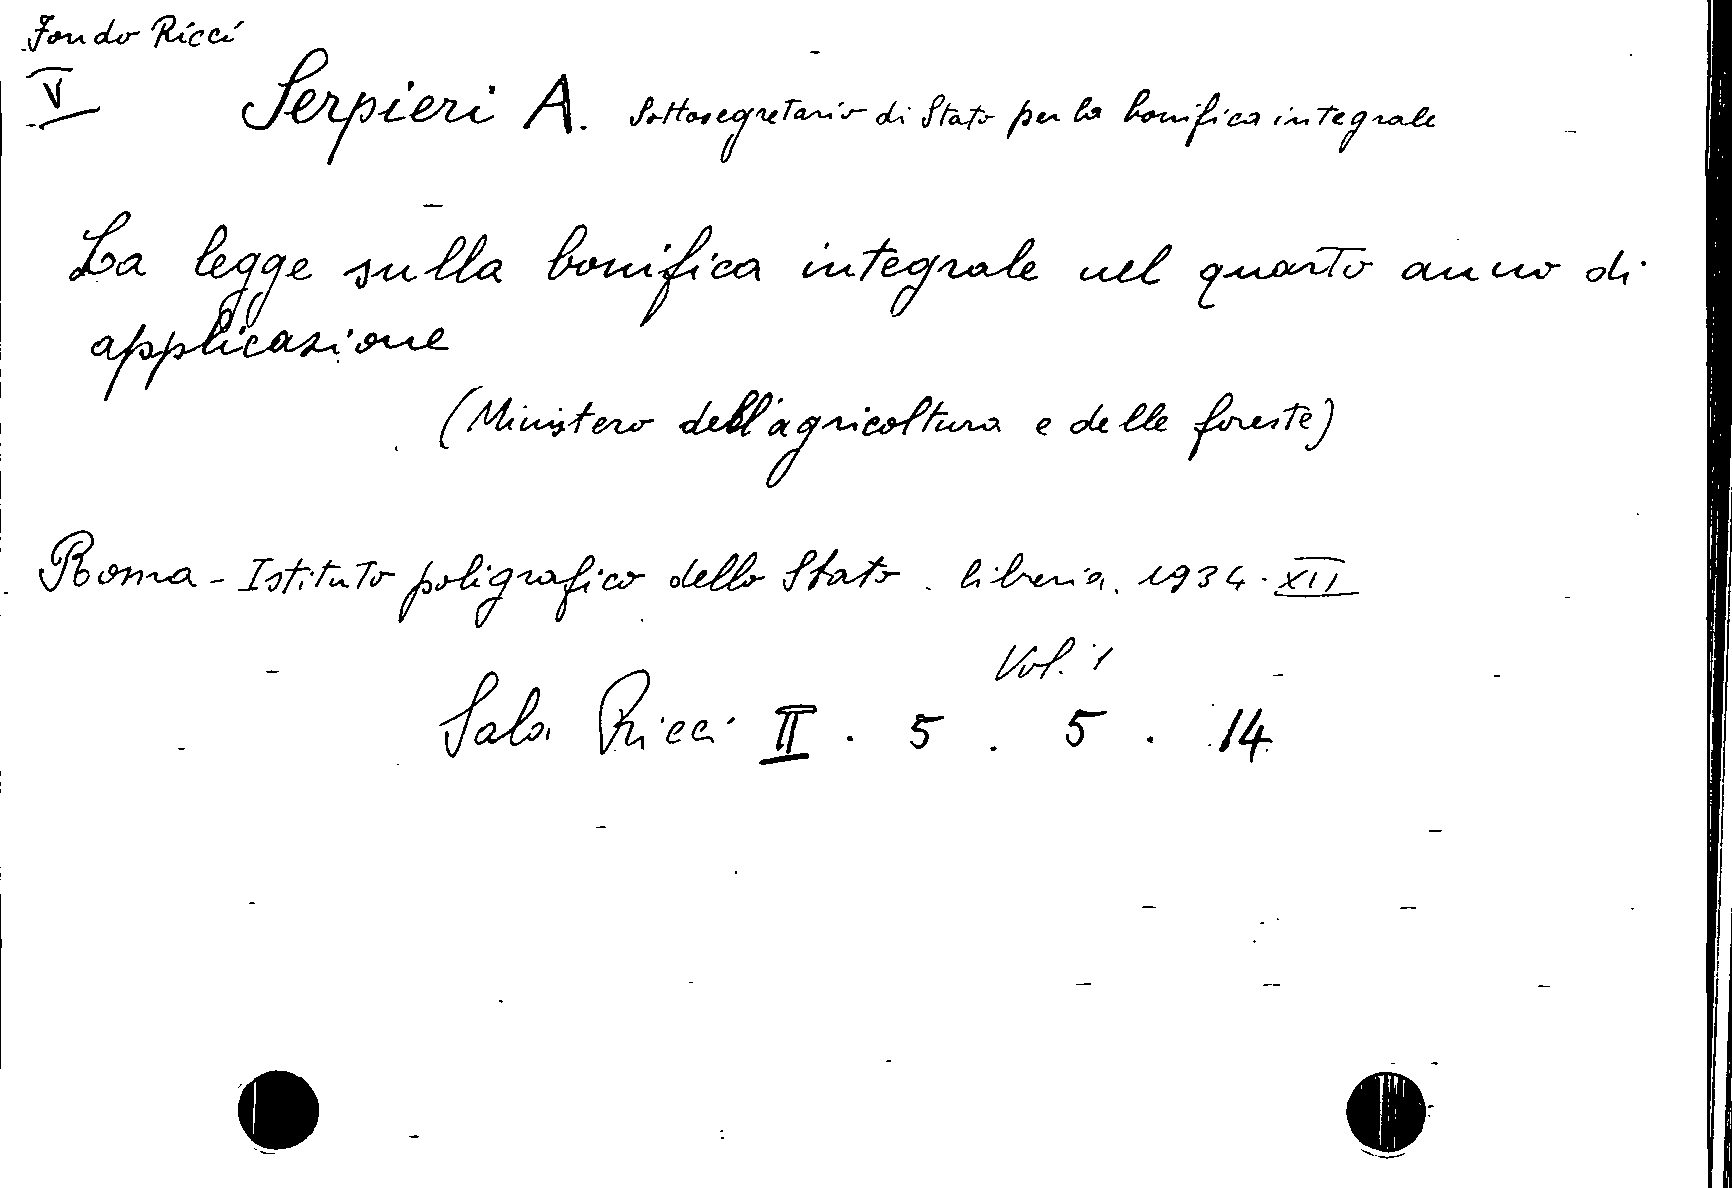 Fondo Ricci
V
Serpieri A. Sottosegretario di Stato per la bonifica integrale
La legge sulla bonifica integrale nel quarto anno di
applicazione
(Ministero dell'agricoltura e delle foreste)
Roma - Istituto poligrafico dello Stato. libreria. 1934. XII
Vol. 1
Sala Ricci II. 5. 5. 14